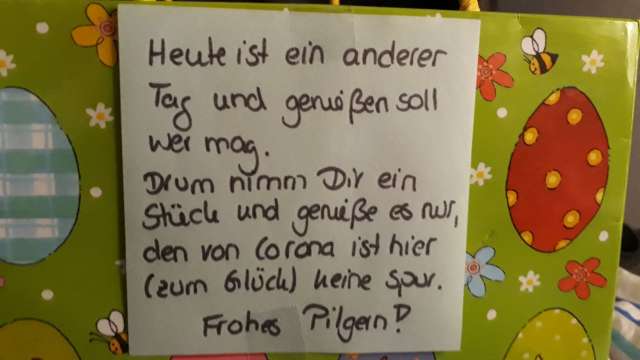 Heute ist ein anderer
Tag und genießen soll
wer mag.
Drum nimm Dir ein
Stück und genieße es nur,
den von Corona ist hier
(zum Glück) keine Spur.
Frohes Pilgern!